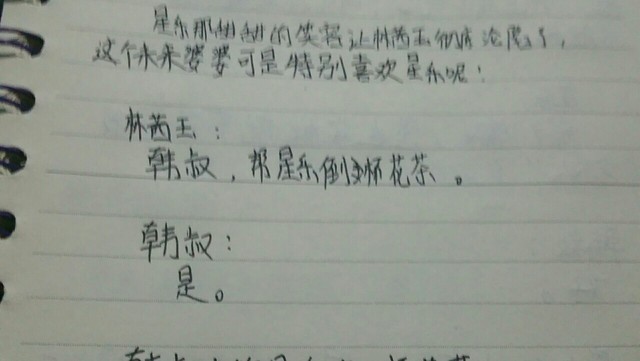 星乐那甜甜的笑容让林芮玉彻底沦陷了，
这个未来婆婆可是特别喜欢星乐呢！
林芮玉：
韩叔，帮星乐倒杯花茶。
韩叔：
是。